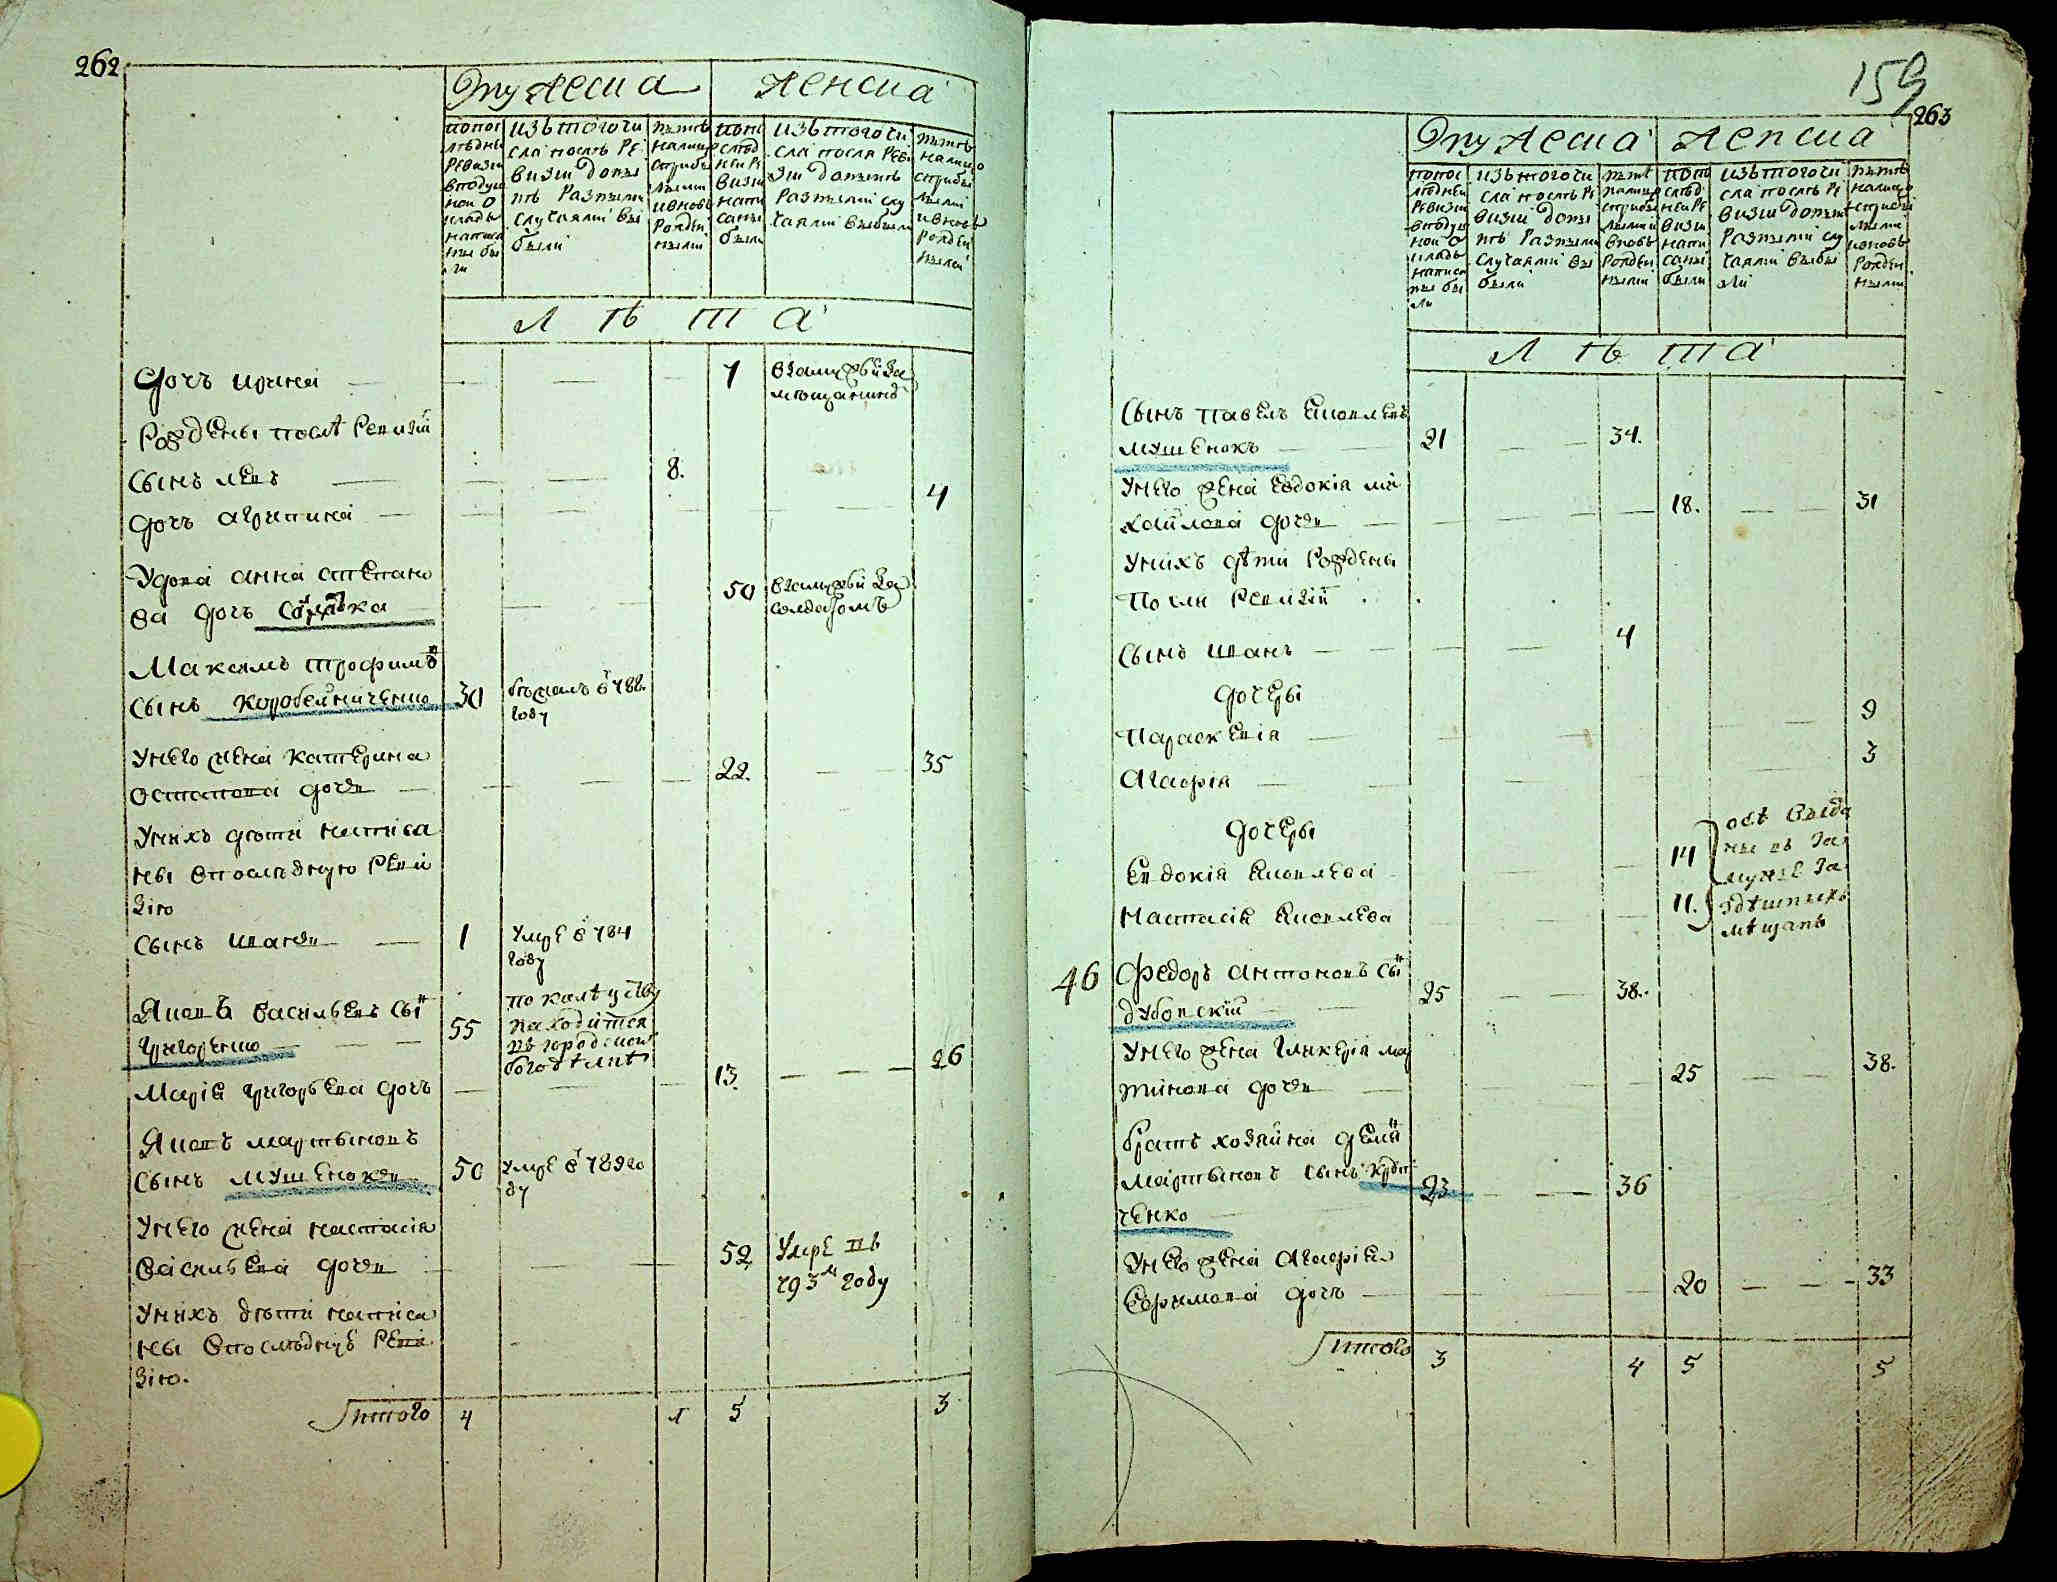 262
Мужеска
Женска
попос
лѣдней
ревизии
вподуш
ном о
кладѣ
написа
ны бы
ли
изътогочи
сла послѣ ре
визии доны
нѣ разными
случаями вы
были
нынѣ
налицо
сприбы
лыми
ивновь
рожден
ными
попо
слѣд
ней ре
визии
напи
саны
были
изътогочи
сла после реви
зии донынѣ
разными слу
чаями выбыли
нынѣ
налицо
сприбы
лыми
ивновь
рожден
ными
лѣта
дочь ирина 7 взамужвй за
мѣщанинѣ
рождены послѣ ревизіи
сынъ левъ 8.
дочь агрипина 4
Удова анна степано
ва дочь 50 взамужвй за
солдатомъ
Максимъ трофимовъ
сынъ коробелниченко 30 бѣжалъ в 788
году
Унего жена катерина
остапова дочь 22. 35
Унихъ дѣти написа
ны впослѣдную реви
зію
сынъ иванъ 1 умре в 784
году
Яковъ васильевъ сынъ
григоренко 55 покалѣцству
находится
въ городской
богодѣлнѣ
Марія григорьева дочь 13. 26
Яковъ мартыновъ
сынъ мушенокъ 50 умре в 789 го
ду
Унего жена настасія
васильева дочь 52 умре въ
793м году
Унихъ дѣти написа
ны впослѣднуе реви
зію.
Итого 4 1 5 3
159
263
Мужеска
Женска
попос
лѣдней
ревизии
вподуш
ной о
кладѣ
написа
ны бы
ли
изътогочи
сла послѣ ре
визии доны
нѣ разными
случаями вы
были
нынѣ
налицо
сприбы
лыми
вновь
рожден
ными
попо
слѣд
ней ре
визи
напи
саны
были
изътогочи
сла послѣ ре
визии донынѣ
разными слу
чаями выбы
ли
нынѣ
налицо
сприбы
лыми
ивновь
рожден
ными
лѣта
сынъ павелъ яковлевъ
мушенокъ 21 34.
Унего жена евдокія ми
хайлова дочь 18. 31
Унихъ дѣти рождены
посли ревизіи
сынъ иванъ 4
дочеры
параскевія 9
Агафія 3
дочеры
Евдокія яковлева 14
Настасіе яковлева 11.
обѣ выда
ны въ за
мужъе за
здѣшнихъ
мѣщанъ
46 Федоръ антоновъ сынъ
дубовскій 25 38.
Унего жена гликерія мар
тинова дочь 25 38.
братъ хозяина
мартыновъ сынъ
ченко 23 36
Унего жена Агафіе
Ефимова дочь 20 33
Итого 3 4 5 5